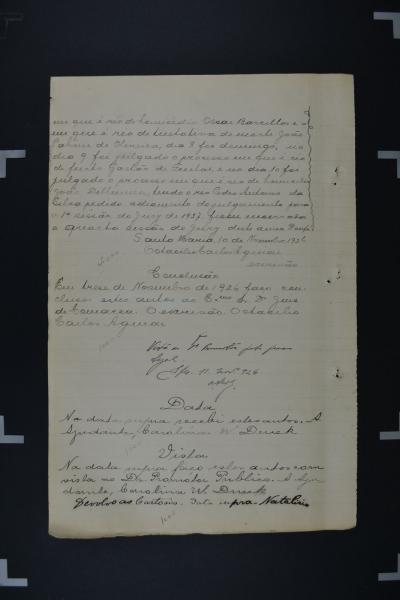 em que é réo de homicidio Oscar Barcellos e o
em que é réo de tentativa de morte João
de Oliveira, dia 8 foi domingo, no
dia 9 foi julgado o processo em que é réo
de furto Gastão de Freitas, e no dia 10 foi
julgado o processo em que é réo de homicidio
João tendo o réo Pedro Antonio da
Silva pedido adiamento do julgamento para
a 1ª sessão do Jury de 1937. Ficou encerrada
a quarta sessão do Jury deste anno. Dou fé.
Santa Maria, 10 de Novembro 1936
Octacilio Carlos Aguiar
escrivão
Conclusão
Em treze de Novembro de 1926 faço con-
clusos estes autos ao Exmo. Sr. Dr. Juiz
de Comarca. O escrivão Octacilio
Carlos Aguiar
Vista
Data
Na data supra recebi estes autos. A
Ajudante, Carolina W. Druck
Vista
Na data supra faço estes autos com
vista ao Dr. Promotor Publico. A Aju-
dante, Carolina W. Druck
Devolvo ao Cartorio. Data supra. Natalicio